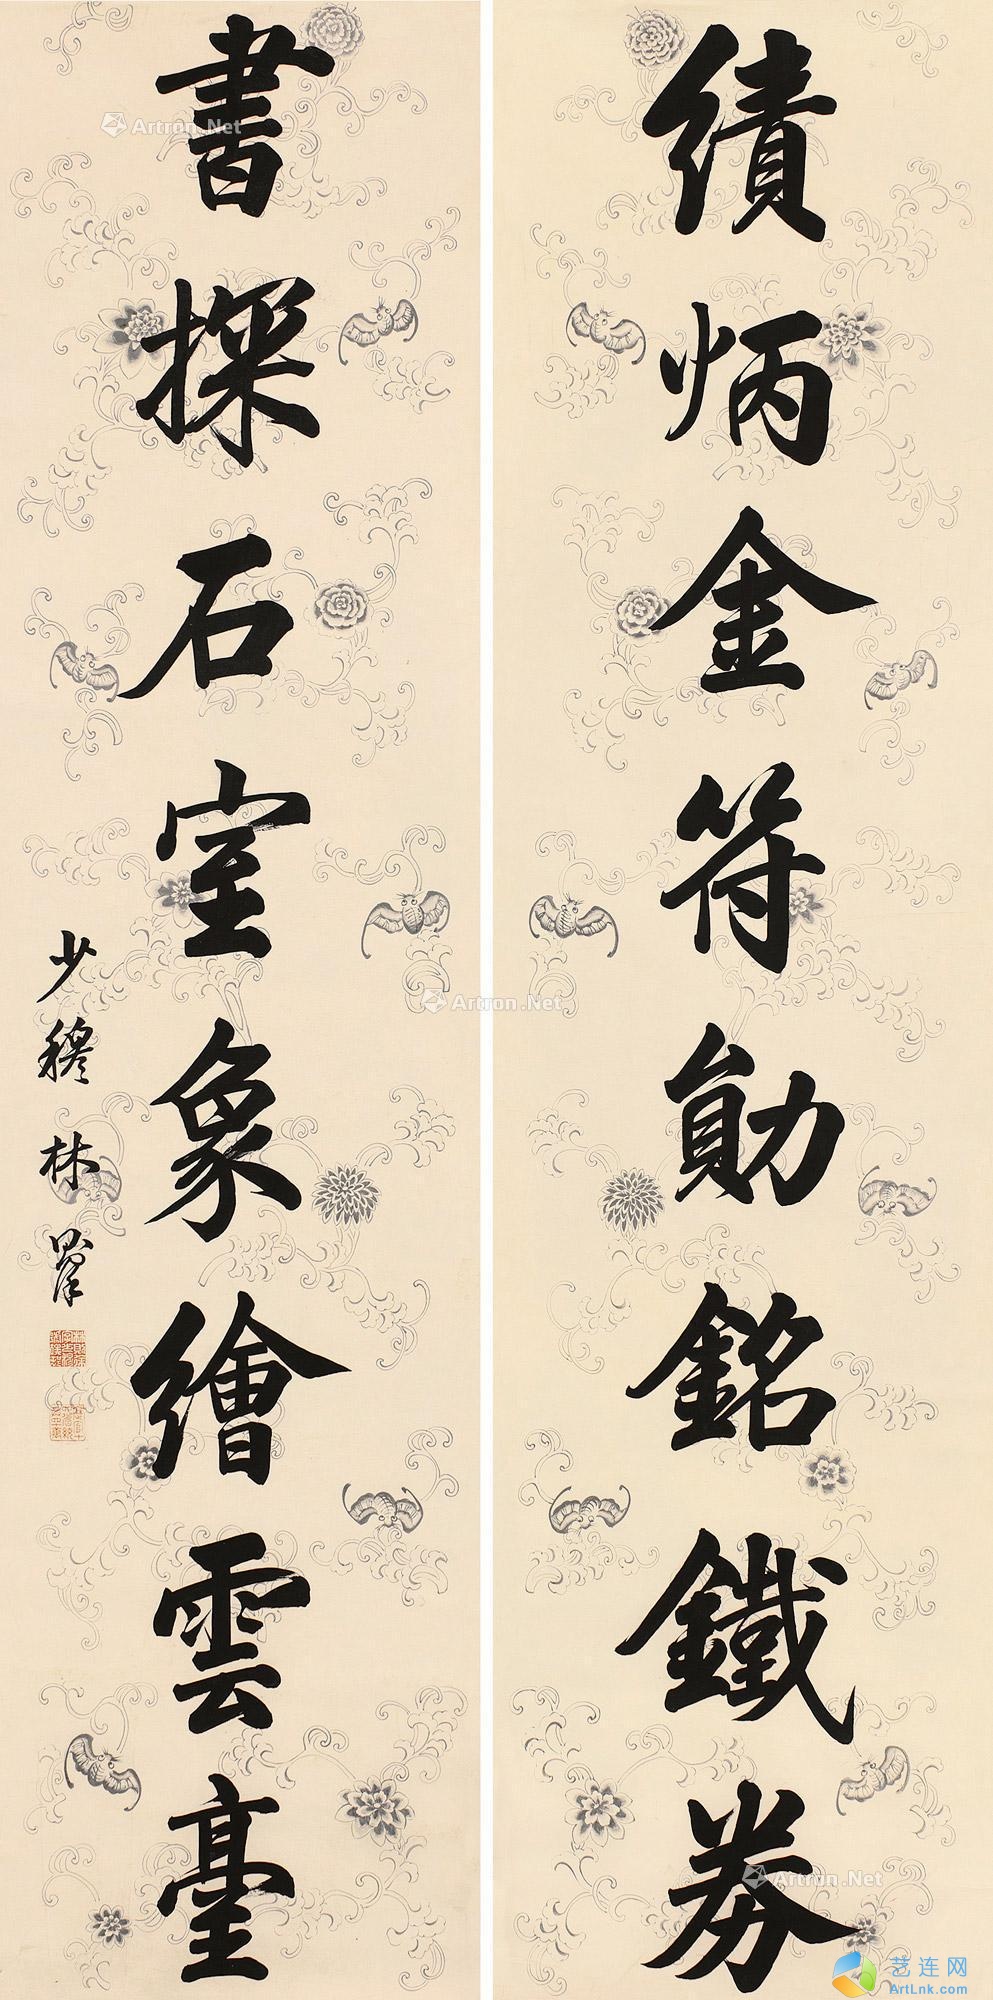 績炳金符勛銘鐵券
書探石室象繪雲臺
少穆林則徐
Artron.Net
Artron.Net
Artron.Net
艺连网
ArtLnk.com